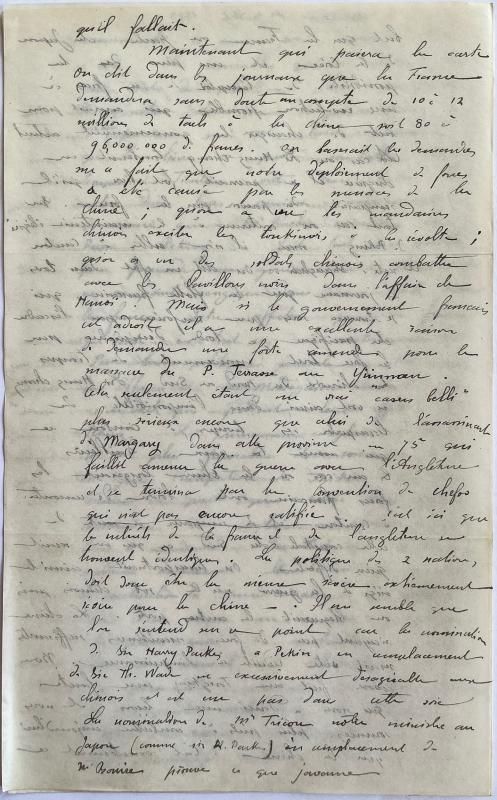 qu'il fallait.
Maintenant qui paiera la carte
On dit dans les journaux que la France
demandera sans doute un compte de 10 à 12
millions de taels à la chine soit 80 à
96,000,000 de francs. en basant les demandes
sur a fait que notre déploiement de forces
a été causé par les menaces de la
chine ; qu'on a vu les mandarins
chinois exciter les tonkinois à la révolte ;
qu'on a vu des soldats chinois combattre
avec les Pavillons noirs dans l'affaire de
Hanoï. Mais si le gouvernement français
est adroit il a une excellente raison
de demander une forte amende pour le
massacre du P. Terrasse au Yunnan
Cela seulement étant un vrai "casus belli"
plus sérieux encore que celui de l'assassinat
de Margary dans cette province en 75 qui
faillit amener la guerre avec l'Angleterre
et se termina par la convention de chefoo
qui n'est pas encore ratifiée. C'est ici que
les intérêts de la france et de l'angleterre se
trouvent identiques. La politique des 2 nations,
doit donc être la même
pour la chine - Il me semble que
l'on s'entend sur ce point car la nomination
de Sir Harry Parkes à Pékin en remplacement
de Sir Th. Wade est excessivement désagréable aux
chinois et est un pas dans cette voie
La nomination de Mr Tricou notre ministre au
Japon (comme sir H. Parkes) en remplacement de
Mr Bourée prouve ce que j'avance